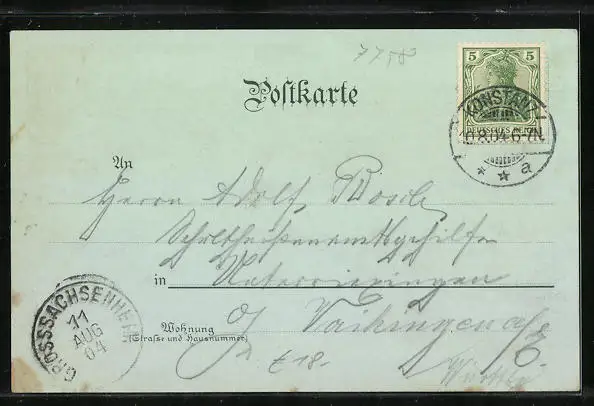 7758
Postkarte
5
DEUTSCHES REICH
KONSTANZ
10.8.04.6-7N.
* * a
An
Herrn Adolf
Schultheißenamtsgehilfe
in Unterriexingen
Wohnung
(Straße und Hausnummer)
o/ Vaihingen a/E.
Württbg
GROSSSACHSENHEIM
11
AUG
04